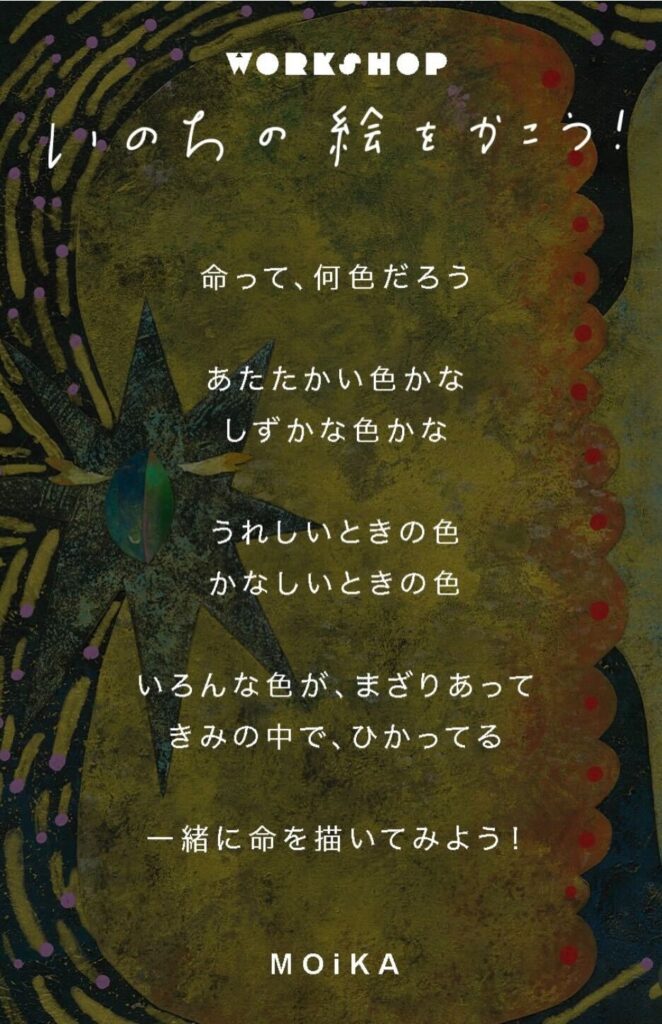 WORKSHOP
いのちの絵をかこう!
命って、何色だろう
あたたかい色かな
しずかな色かな
うれしいときの色
かなしいときの色
いろんな色が、まざりあって
きみの中で、ひかってる
一緒に命を描いてみよう!
MOiKA